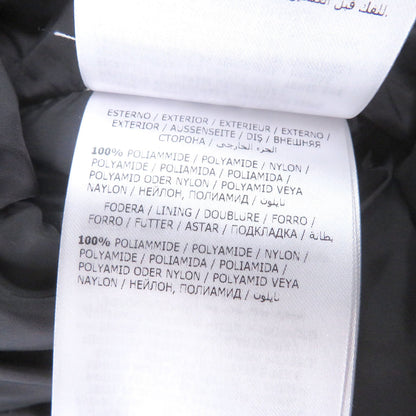 للفك قبل
ESTERNO / EXTERIOR / EXTERIEUR / EXTERNO /
EXTERIOR / AUSSENSEITE / DIŞ / ВНЕШНЯЯ
СТОРОНА / الجزء الخارجي
100% POLIAMMIDE / POLYAMIDE / NYLON /
POLYAMIDE / POLIAMIDA / POLIAMIDA /
POLYAMID ODER NYLON / POLYAMID VEYA
NAYLON / НЕЙЛОН, ПОЛИАМИД / نايلون
FODERA / LINING / DOUBLURE / FORRO /
FORRO / FUTTER / ASTAR / ПОДКЛАДКА / بطانة
100% POLIAMMIDE / POLYAMIDE / NYLON /
POLYAMIDE / POLIAMIDA / POLIAMIDA /
POLYAMID ODER NYLON / POLYAMID VEYA
NAYLON / НЕЙЛОН, ПОЛИАМИД / نايلون